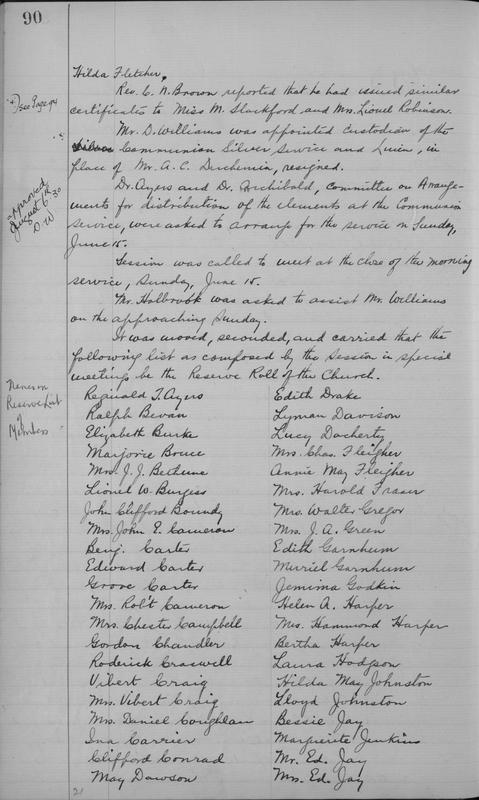 90
Hilda Fletcher.
Rev. C. N. Brown reported that he had issued similar
certificates to Miss M. Stackford and Mrs. Lionel Robinson.
*) see Page 94
Mr. D. Williams was appointed custodian of the
Communion Silver Service and Linen, in
place of Mr. A. C. Duchemin, resigned.
Dr. Ayers and Dr. Archibald, committee on Arrange-
ments for distribution of the elements at the Communion
approved
August 6th 30
D. W
service, were asked to arrange for the service on Sunday,
June 15.
Session was called to meet at the close of the morning
service, Sunday, June 15.
Mr. Holbrook was asked to assist Mr. Williams
on the approaching Sunday.
It was moved, seconded, and carried that the
following list as composed by the Session in special
meetings be the Reserve Roll of the Church.
Names on
Reserve List
of
Members
Reginald T. Ayers
Ralph Bevan
Elizabeth Burke
Marjorie Bruce
Mrs. J. J. Bethune
Lionel W. Burgess
John Clifford Boundy
Mrs. John E. Cameron
Benj. Carter
Edward Carter
Grove Carter
Mrs. Rob't Cameron
Mrs. Chester Campbell
Gordon Chandler
Roderick Craswell
Vibert Craig
Mrs. Vibert Craig
Mrs. Daniel Coughlan
Ina Carrier
Clifford Conrad
May Dawson
21
Edith Drake
Lyman Davison
Lucy Docherty
Mrs. Chas. Fleigher
Annie May Fleigher
Mrs. Harold Fraser
Mrs. Walter Gregor
Mrs. J. A. Green
Edith Garnhum
Muriel Garnhum
Jemima Godkin
Helen A. Harper
Mrs. Hammond Harper
Bertha Harper
Laura Hodgson
Hilda May Johnston
Lloyd Johnston
Bessie Jay
Marguerite Jenkins
Mr. Ed. Jay
Mrs. Ed. Jay